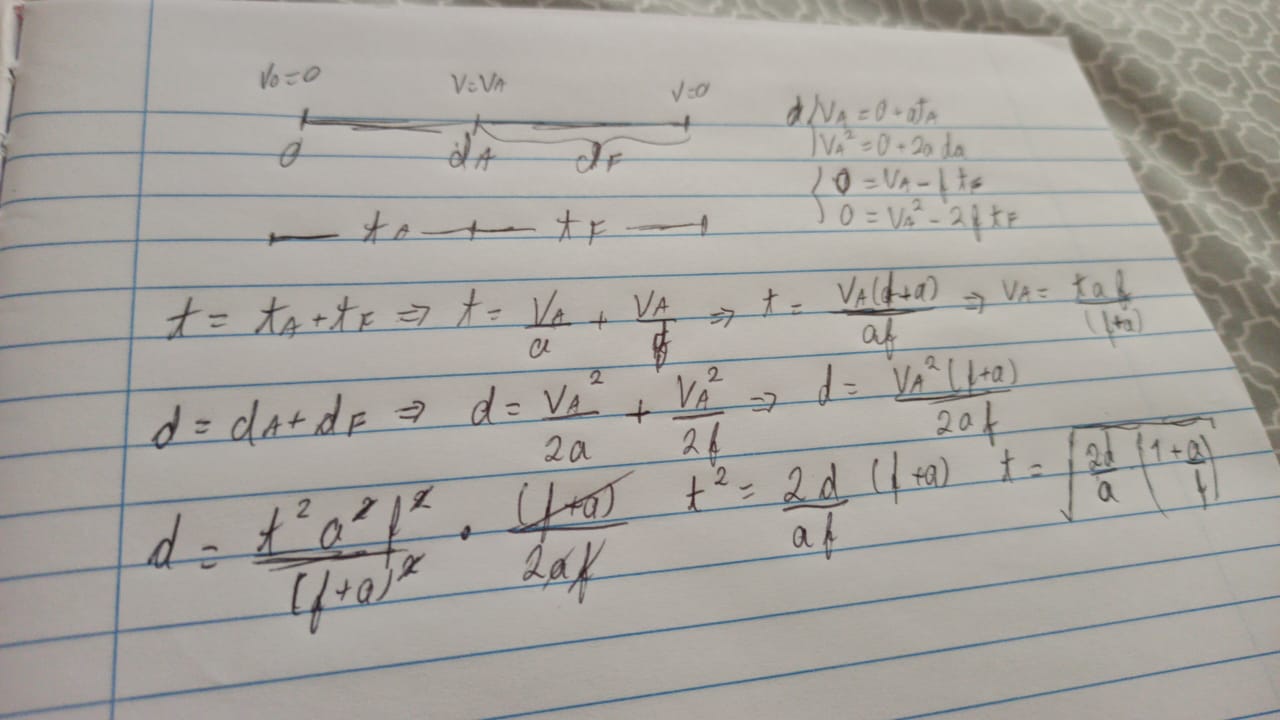 V₀=0 V=VA V=0
0 dA dF
tA tF
VA = 0+atA
VA² = 0+2a da
0 = VA - f tF
0 = VA² - 2f tF
t = tA + tF ⇒ t = VA/a + VA/f ⇒ t = VA(f+a)/af ⇒ VA = t a f/(f+a)
d = dA + dF ⇒ d = VA²/2a + VA²/2f ⇒ d = VA²(f+a)/2af
d = t² a² f²/(f+a)² · (f+a)/2af t² = 2d/af (f+a) t = √(2d/a (1+a/f))